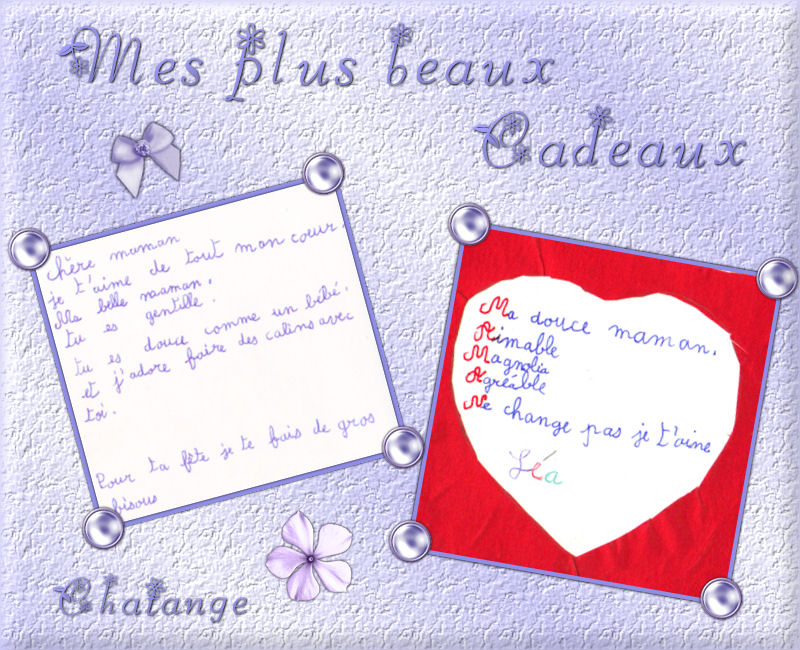 Mes plus beaux
Cadeaux
chère maman
je t'aime de tout mon coeur.
Ma belle maman.
tu es gentille.
tu es douce comme un bébé.
et j'adore faire des calins avec
toi.
Pour ta fête je te fais de gros
bisous
Ma douce maman.
Aimable
Magnolia
Agréable
Ne change pas je t'aime
Léa
Chatange